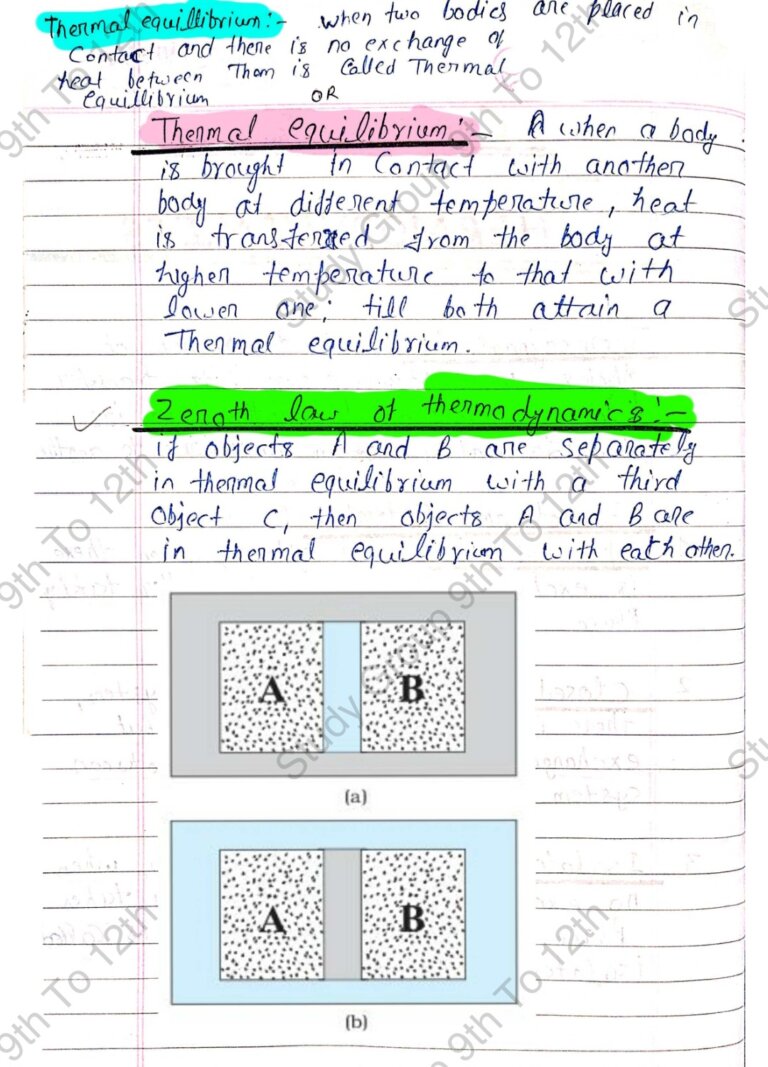 Thermal equillibrium:- when two bodies are placed in
Contact and there is no exchange of
heat between Thom is Called Thermal
Equillibrium OR
Thermal equilibrium:- A when a body
is brought In Contact with another
body at different temperature, heat
is transferred from the body at
higher temperature to that with
lower one; till both attain a
Thermal equilibrium.
Zeroth law of thermodynamics:-
if objects A and B are separately
in thermal equilibrium with a third
Object C, then objects A and B are
in thermal equilibrium with each other.
A B
(a)
A B
(b)
9th To 12th
Study Group 9th To 12th
Study Group 9th To 12th
9th To 12th
9th To 12th